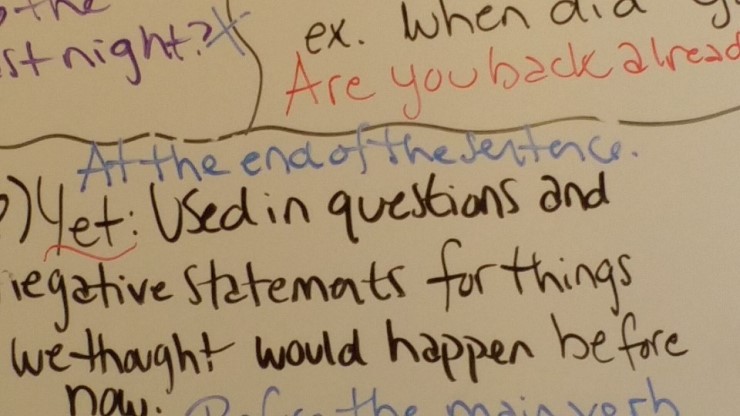 st night?X
ex. When did
Are you back alread
At the end of the sentence.
) Yet: Used in questions and
negative statemats for things
we thought would happen before
now. Before the main verb